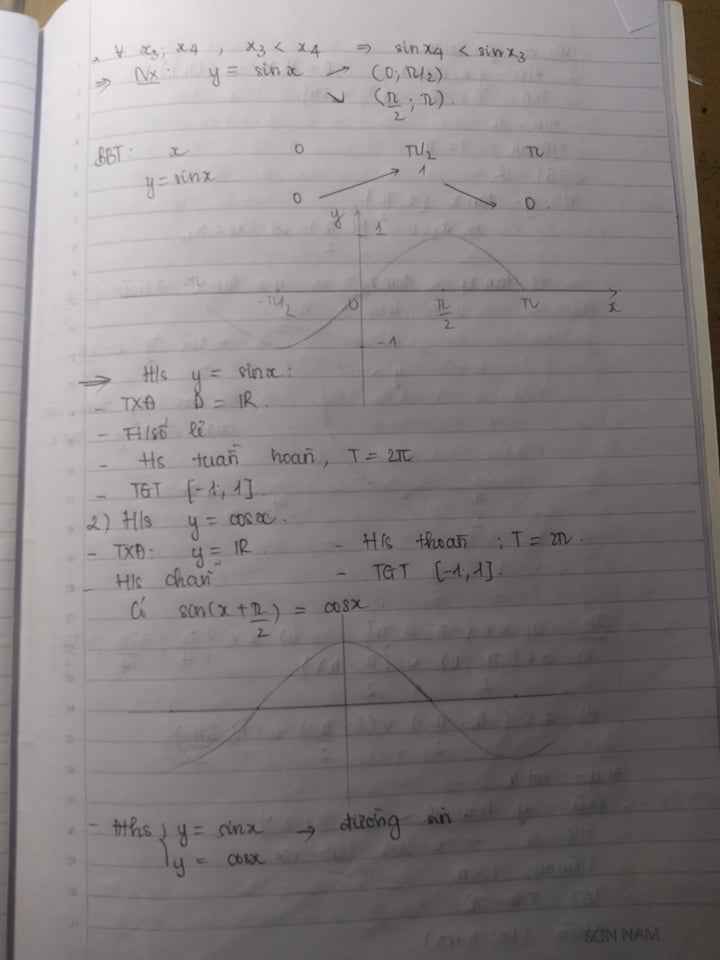 , ∀ x₃; x₄ , x₃ < x₄ ⇒ sinx₄ < sinx₃
⇒ Nx: y = sinx ↗ (0; π/2)
↘ (π/2 ; π).
BBT: x 0 π/2 π
y = sinx 0 ↗ 1 ↘ 0.
y 1
-π -π/2 0 π/2 π x
-1
⇒ H/s y = sinx:
- TXĐ D = IR.
- H/số lẻ
- Hs tuần hoàn, T = 2π
- TGT [-1; 1]
2) H/s y = cosx.
- TXĐ: y = IR - H/s thoàn ; T = 2π.
- H/s chẵn - TGT [-1, 1].
Có sin(x + π/2) = cosx
- Đths { y = sinx → đường sin
y = cosx
SƠN NAM